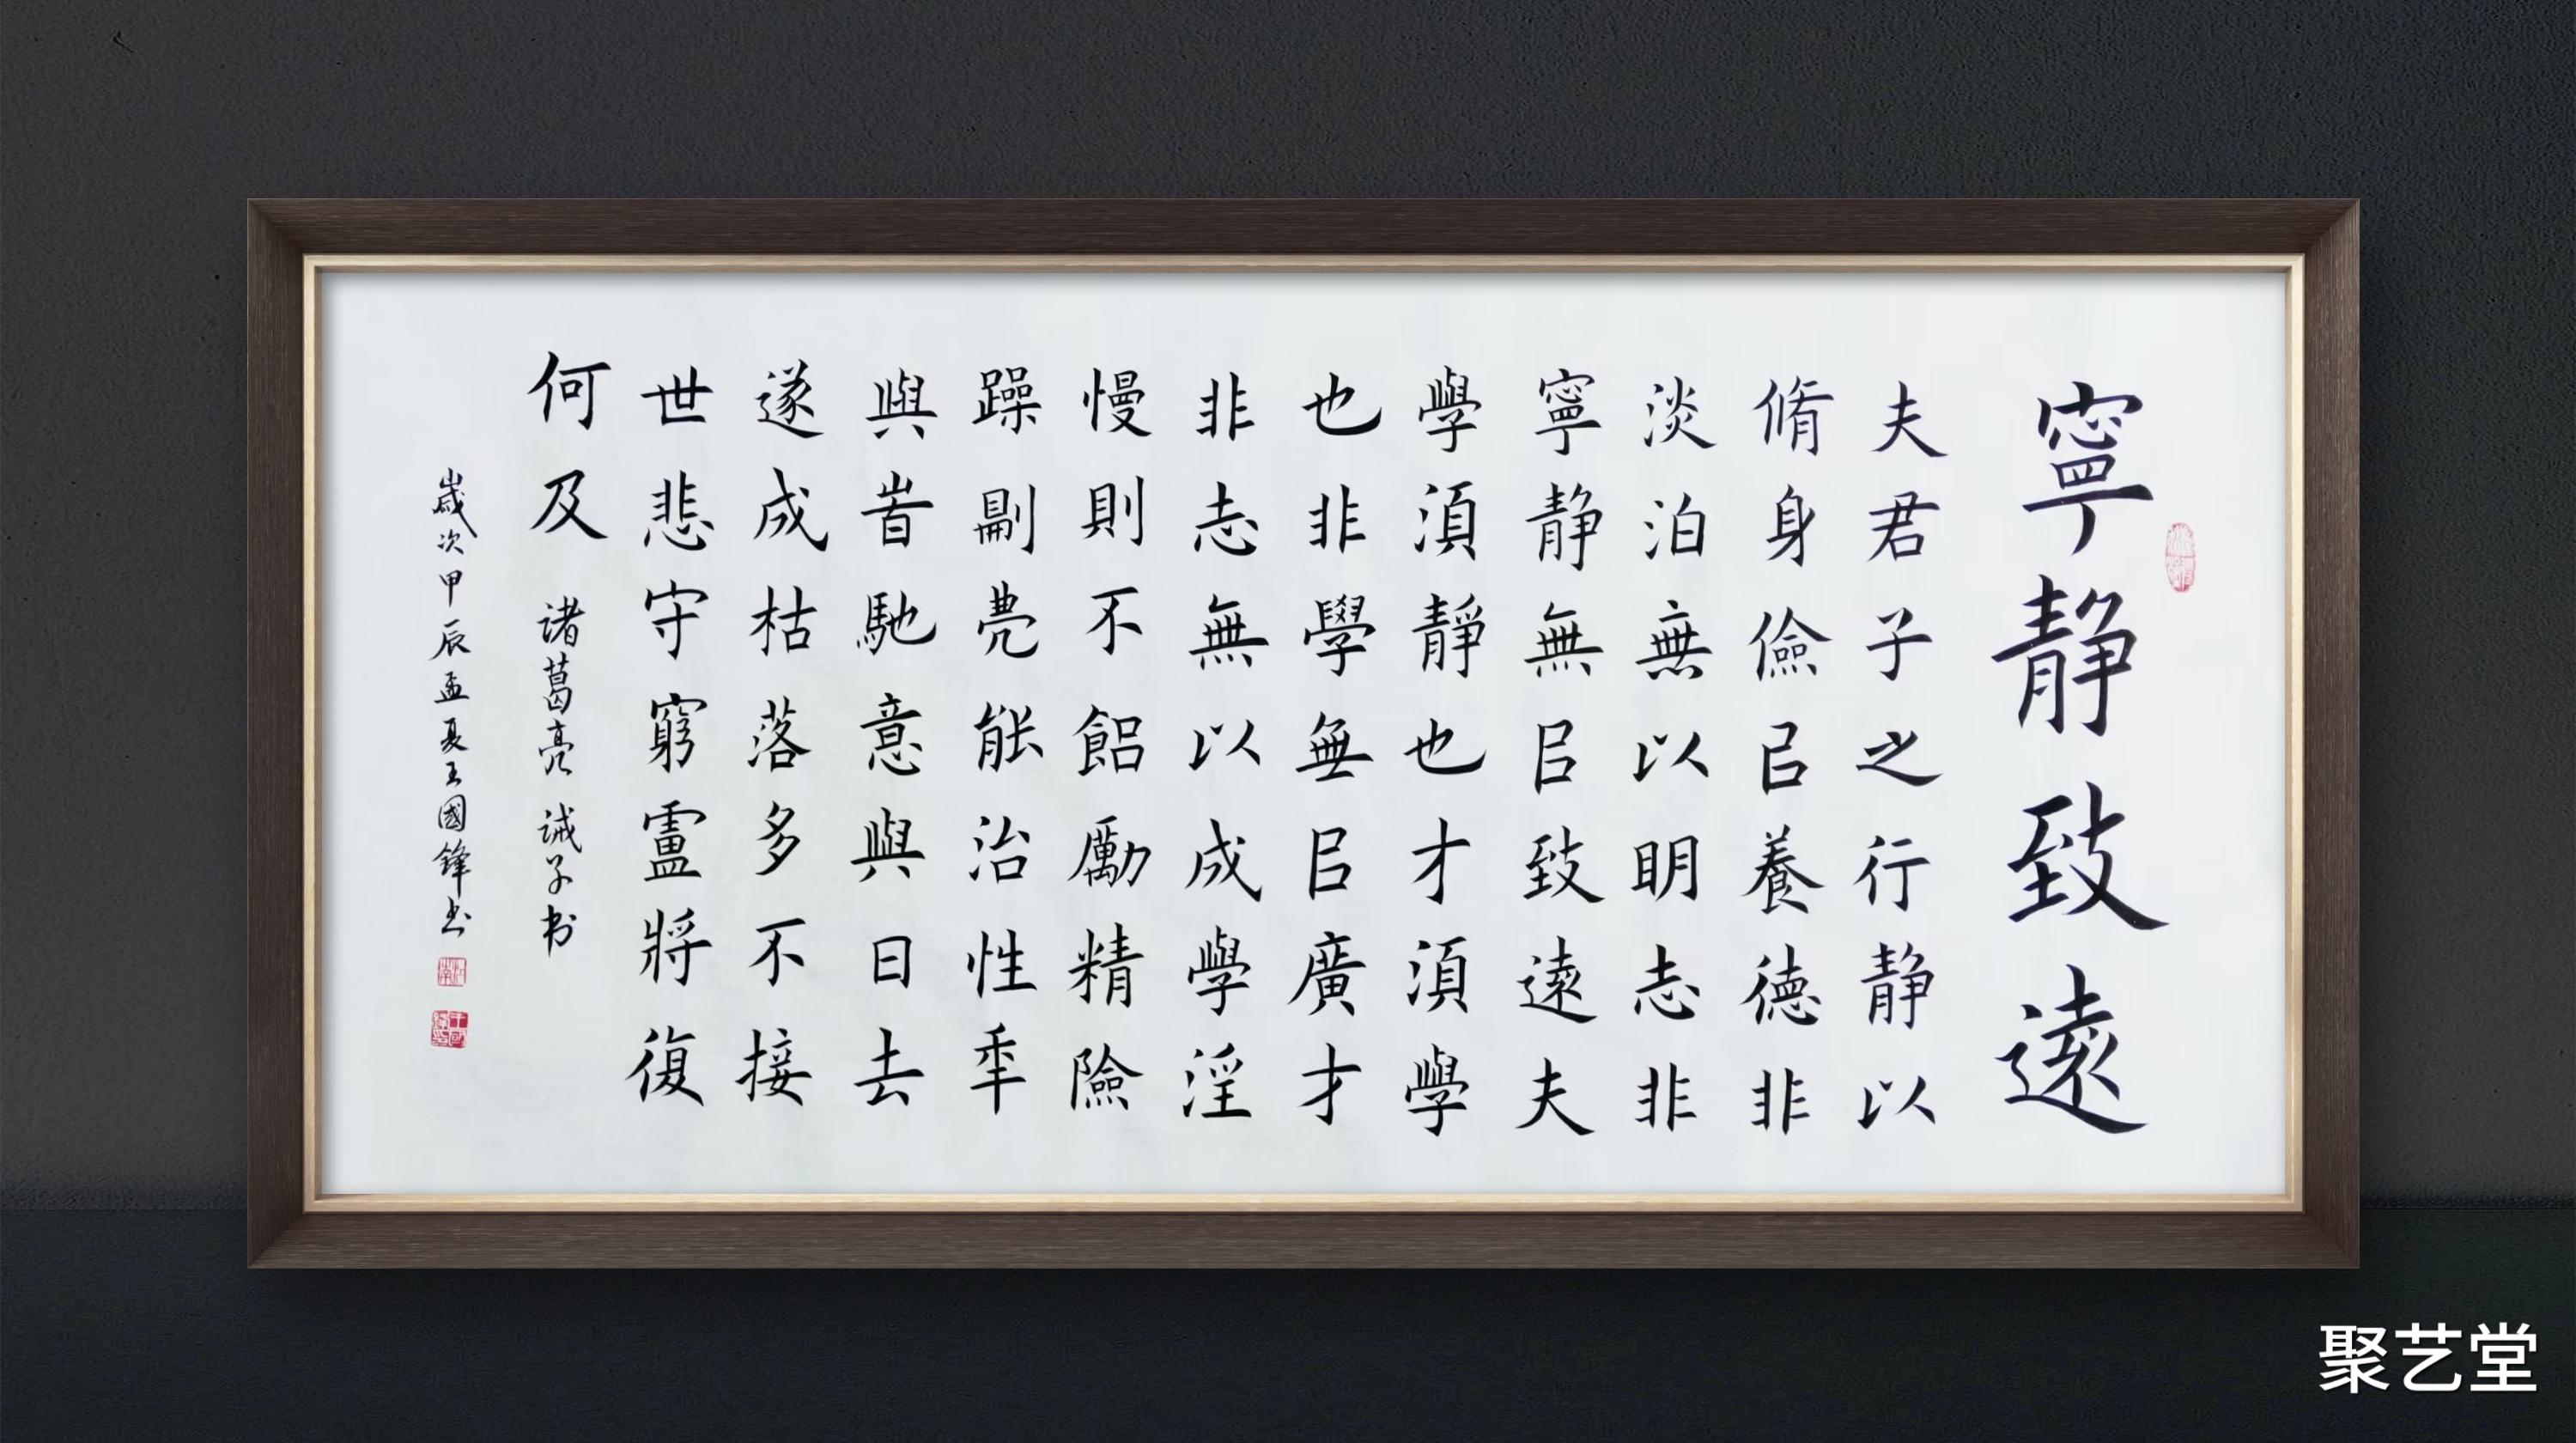 寧静致遠
夫君子之行静以
脩身儉㠯養德非
淡泊無以眀志非
寧静無㠯致遠夫
學湏静也才湏學
也非學無㠯廣才
非志無以成學淫
慢則不勵精險
躁則能治性秊
與旹馳意與日去
遂成枯落多不接
世悲守窮盧將復
何及 诸葛亮 诫子书
歲次甲辰孟夏王國鋒书
聚艺堂